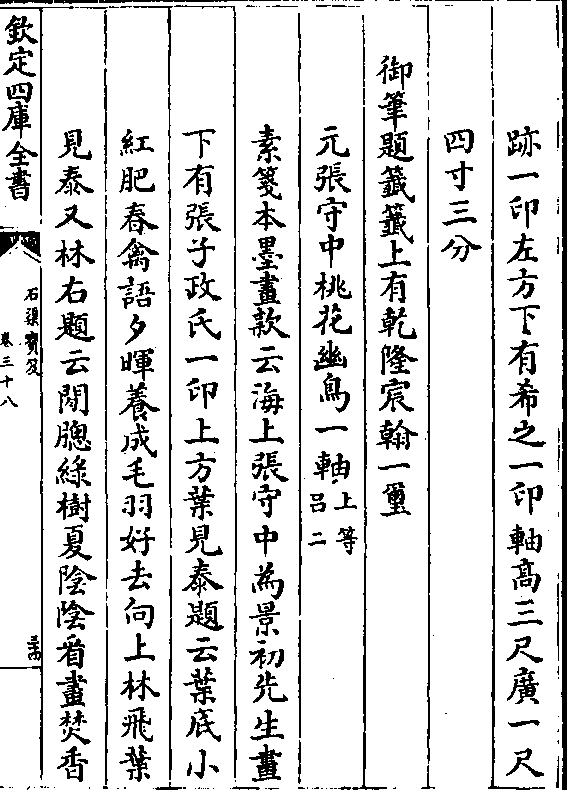 跡一印左方下有希之一印軸髙三尺廣一尺
四寸三分
御筆題籤籤上有乾隆宸翰一璽
元張守中桃花幽鳥一軸上等吕二
素箋本墨畫款云海上張守中為景初先生畫
下有張子政氏一印上方葉見泰題云葉底小
紅肥春禽語夕暉養成毛羽好去向上林飛葉
見泰又林右題云閑牕綠樹夏陰陰看畫焚香
欽定四庫全書
石渠寳笈
卷三十八